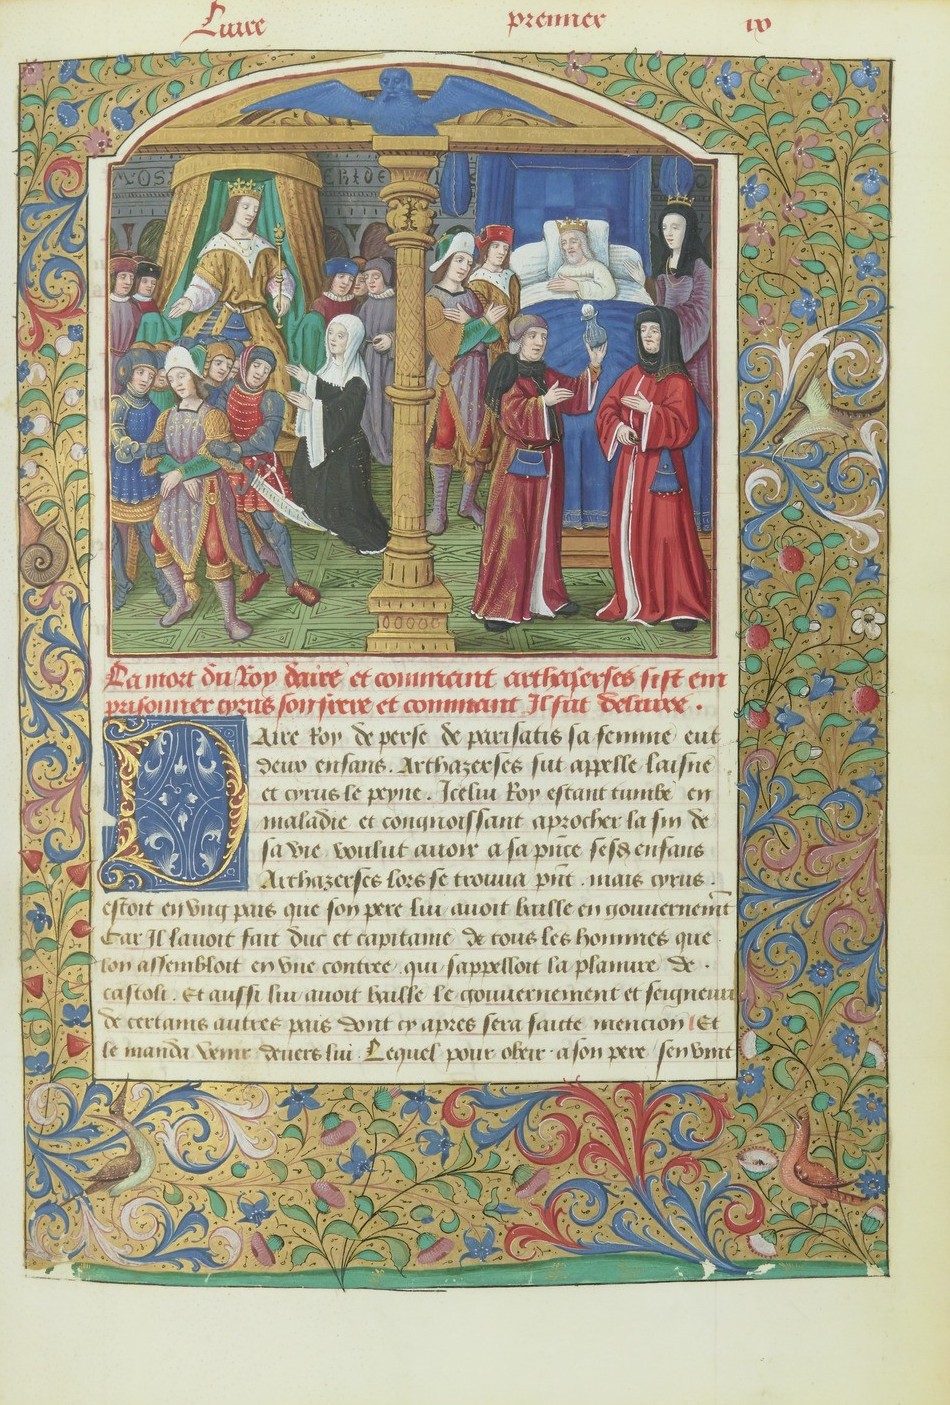 Liure premier ix
La mort du Roy daire et comment arthaxerses fist em
prisonner cyrus son frere et comment Il fut deliure .
Daire Roy de perse de parisatis sa femme eut
deux enfans . Arthazerses fut appelle laisne
et cyrus le ieune . Icelui Roy estant tumbe en
maladie et congnoissant aprocher la fin de
sa vie voulut auoir a sa pn̄ce sesd enfans
Arthazerses lors se trouua pn̄t . mais cyrus .
estoit en vng pais que son pere lui auoit baille en gouuernemt̄
Car Il lauoit fait duc et capitaine de tous les hommes que
lon assembloit en vne contree qui sappelloit la planure de .
castoli . Et aussi lui auoit baille le gouuernement et seigneurie
de certains autres pais dont cy apres sera faicte mencion Et
le manda venir deuers lui . Lequel pour obeir a son pere sen vint